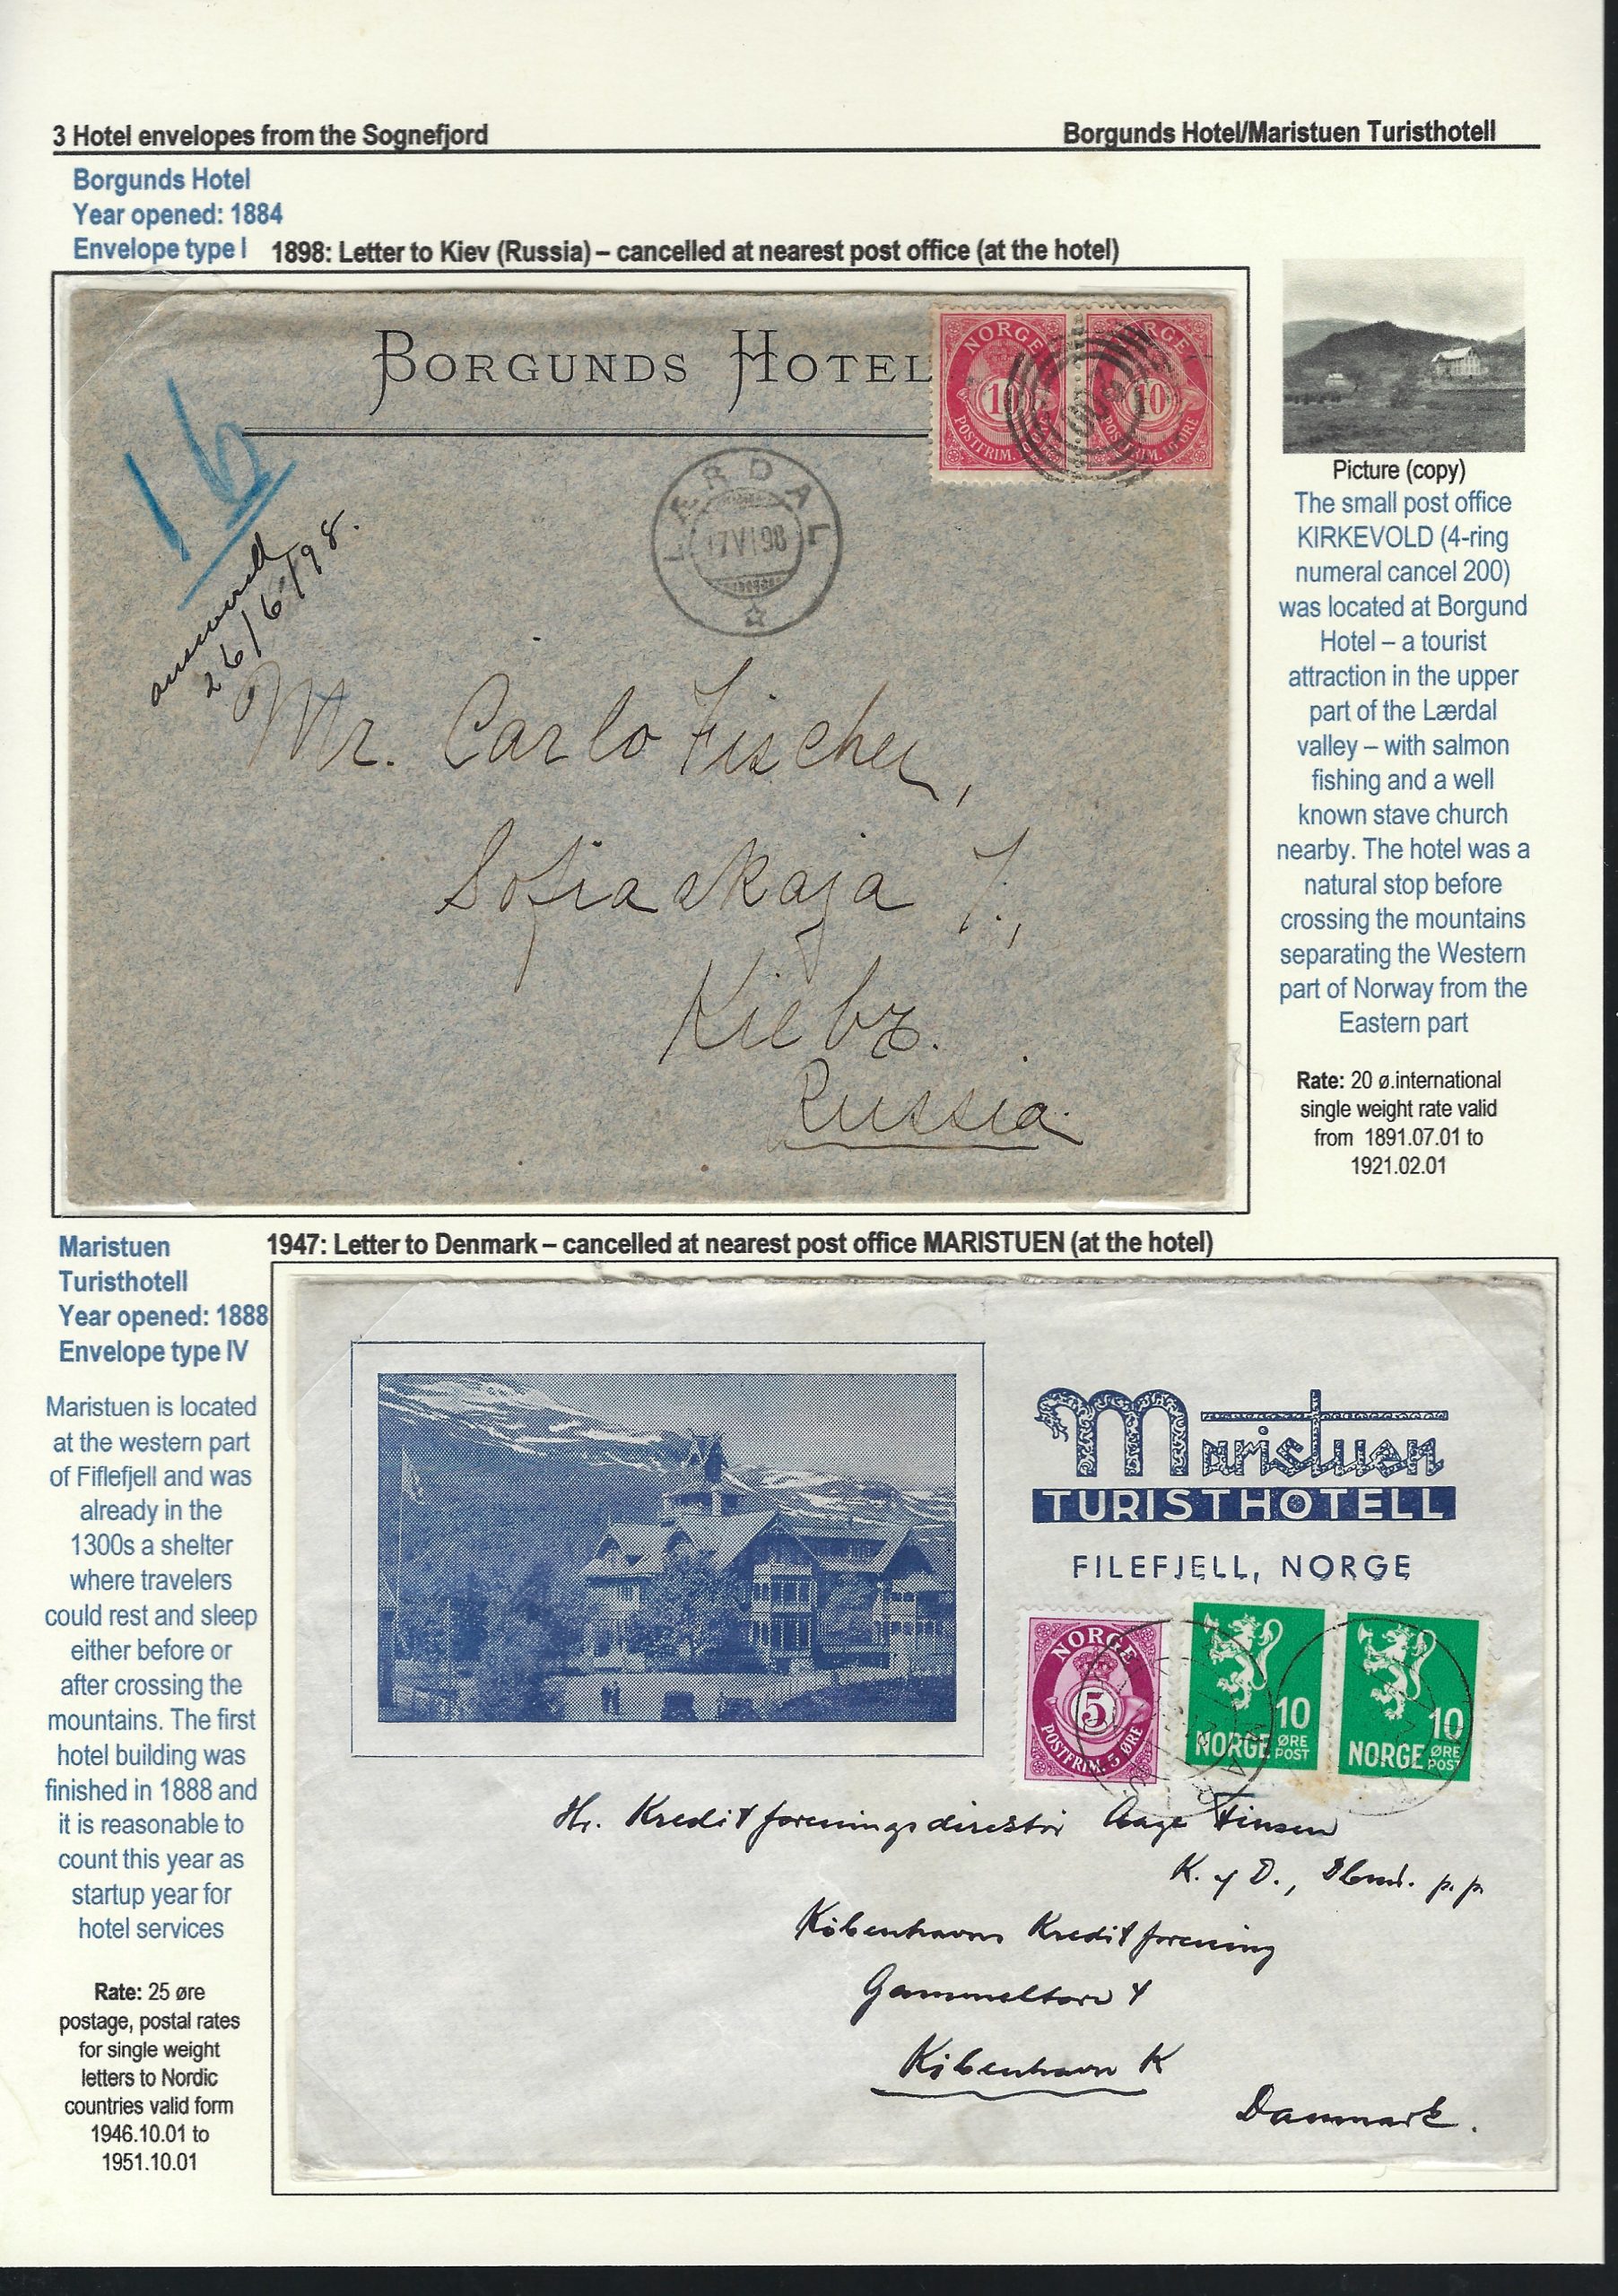 3 Hotel envelopes from the Sognefjord
Borgunds Hotel/Maristuen Turisthotell
Borgunds Hotel
Year opened: 1884
Envelope type I
1898: Letter to Kiev (Russia) – cancelled at nearest post office (at the hotel)
BORGUNDS HOTEL
NORGE
10
POSTFRIM.
NORGE
10
POSTFRIM. 10 ØRE
16
answered
26/6/98.
LÆRDAL
17 VI 98
Mr. Carlo Fischer,
Sofiaskaja 7.,
Kiebz.
Russia.
Picture (copy)
The small post office
KIRKEVOLD (4-ring
numeral cancel 200)
was located at Borgund
Hotel – a tourist
attraction in the upper
part of the Lærdal
valley – with salmon
fishing and a well
known stave church
nearby. The hotel was a
natural stop before
crossing the mountains
separating the Western
part of Norway from the
Eastern part
Rate: 20 ø.international
single weight rate valid
from 1891.07.01 to
1921.02.01
Maristuen
Turisthotell
Year opened: 1888
Envelope type IV
1947: Letter to Denmark – cancelled at nearest post office MARISTUEN (at the hotel)
Maristuen is located
at the western part
of Fiflefjell and was
already in the
1300s a shelter
where travelers
could rest and sleep
either before or
after crossing the
mountains. The first
hotel building was
finished in 1888 and
it is reasonable to
count this year as
startup year for
hotel services
Rate: 25 øre
postage, postal rates
for single weight
letters to Nordic
countries valid form
1946.10.01 to
1951.10.01
Maristuen
TURISTHOTELL
FILEFJELL, NORGE
NORGE
5
POSTFRIM. 5 ØRE
10
NORGE ØRE POST
10
NORGE ØRE POST
Hr. Kreditforeningsdirektør Aage
K. af D.,
Københavns Kreditforening
Gammeltorv 4
København K
Danmark.